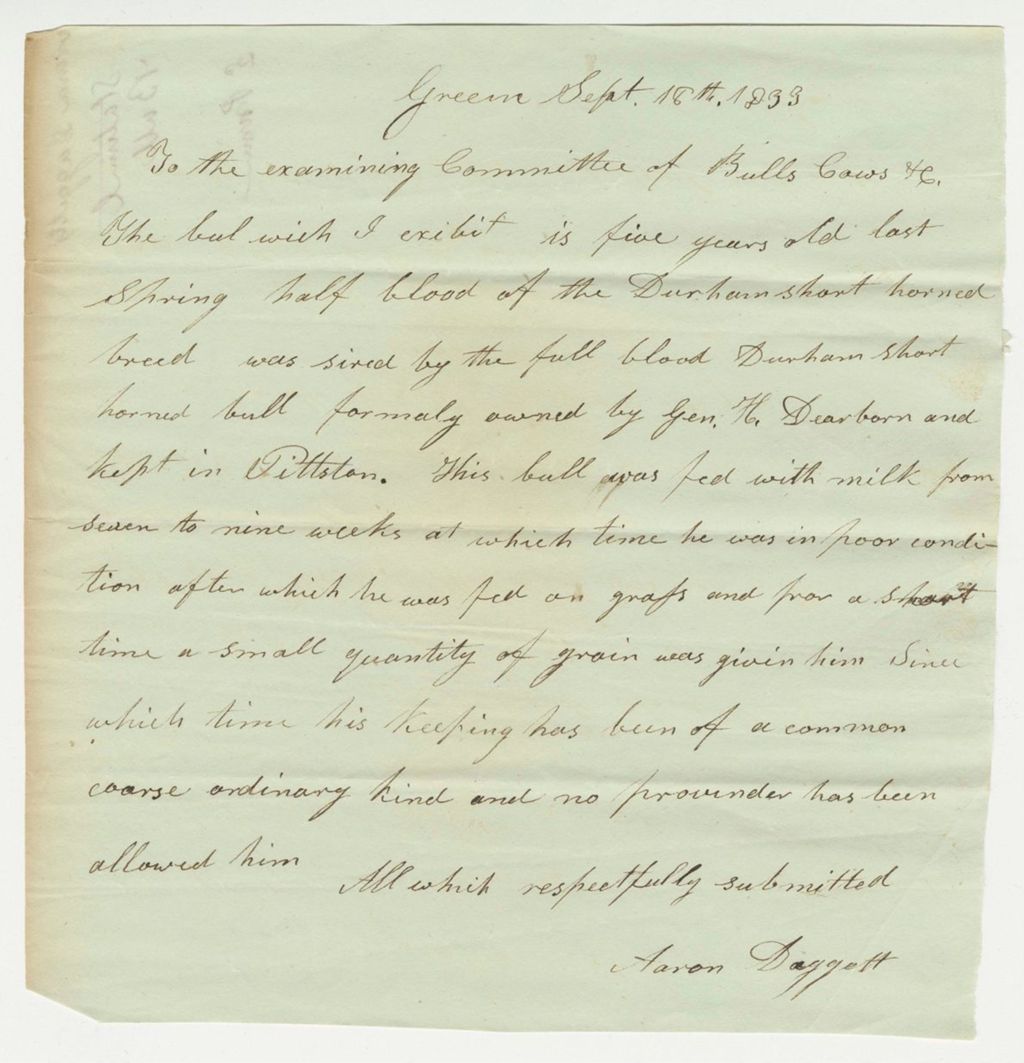 Greene Sept. 18th. 1833
To the examining Committee of Bulls Cows &C.
The bul wich I exibit is five years old last
Spring half blood of the Durham short horned
breed was sired by the full blood Durham short
horned bull formaly owned by Gen. H. Dearborn and
kept in Pittston. This bull was fed with milk from
seven to nine weeks at which time he was in poor condi-
tion after which he was fed on grass and for a short
time a small quantity of grain was givin him Since
which time his keeping has been of a common
coarse ordinary kind and no provinder has been
allowed him
All which respectfully submitted
Aaron Daggett